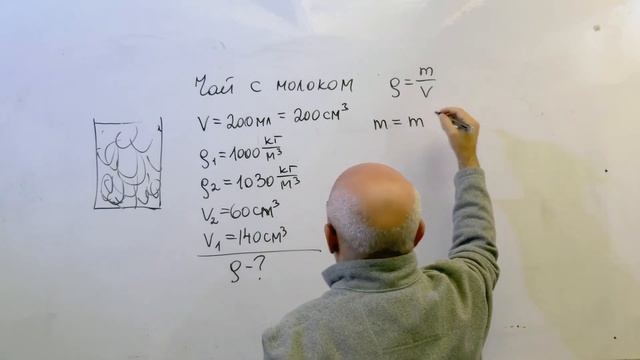 Чай с молоком
V = 200 мл = 200 см³
ρ₁ = 1000 кг/м³
ρ₂ = 1030 кг/м³
V₂ = 60 см³
V₁ = 140 см³
ρ - ?
ρ = m/V
m = m